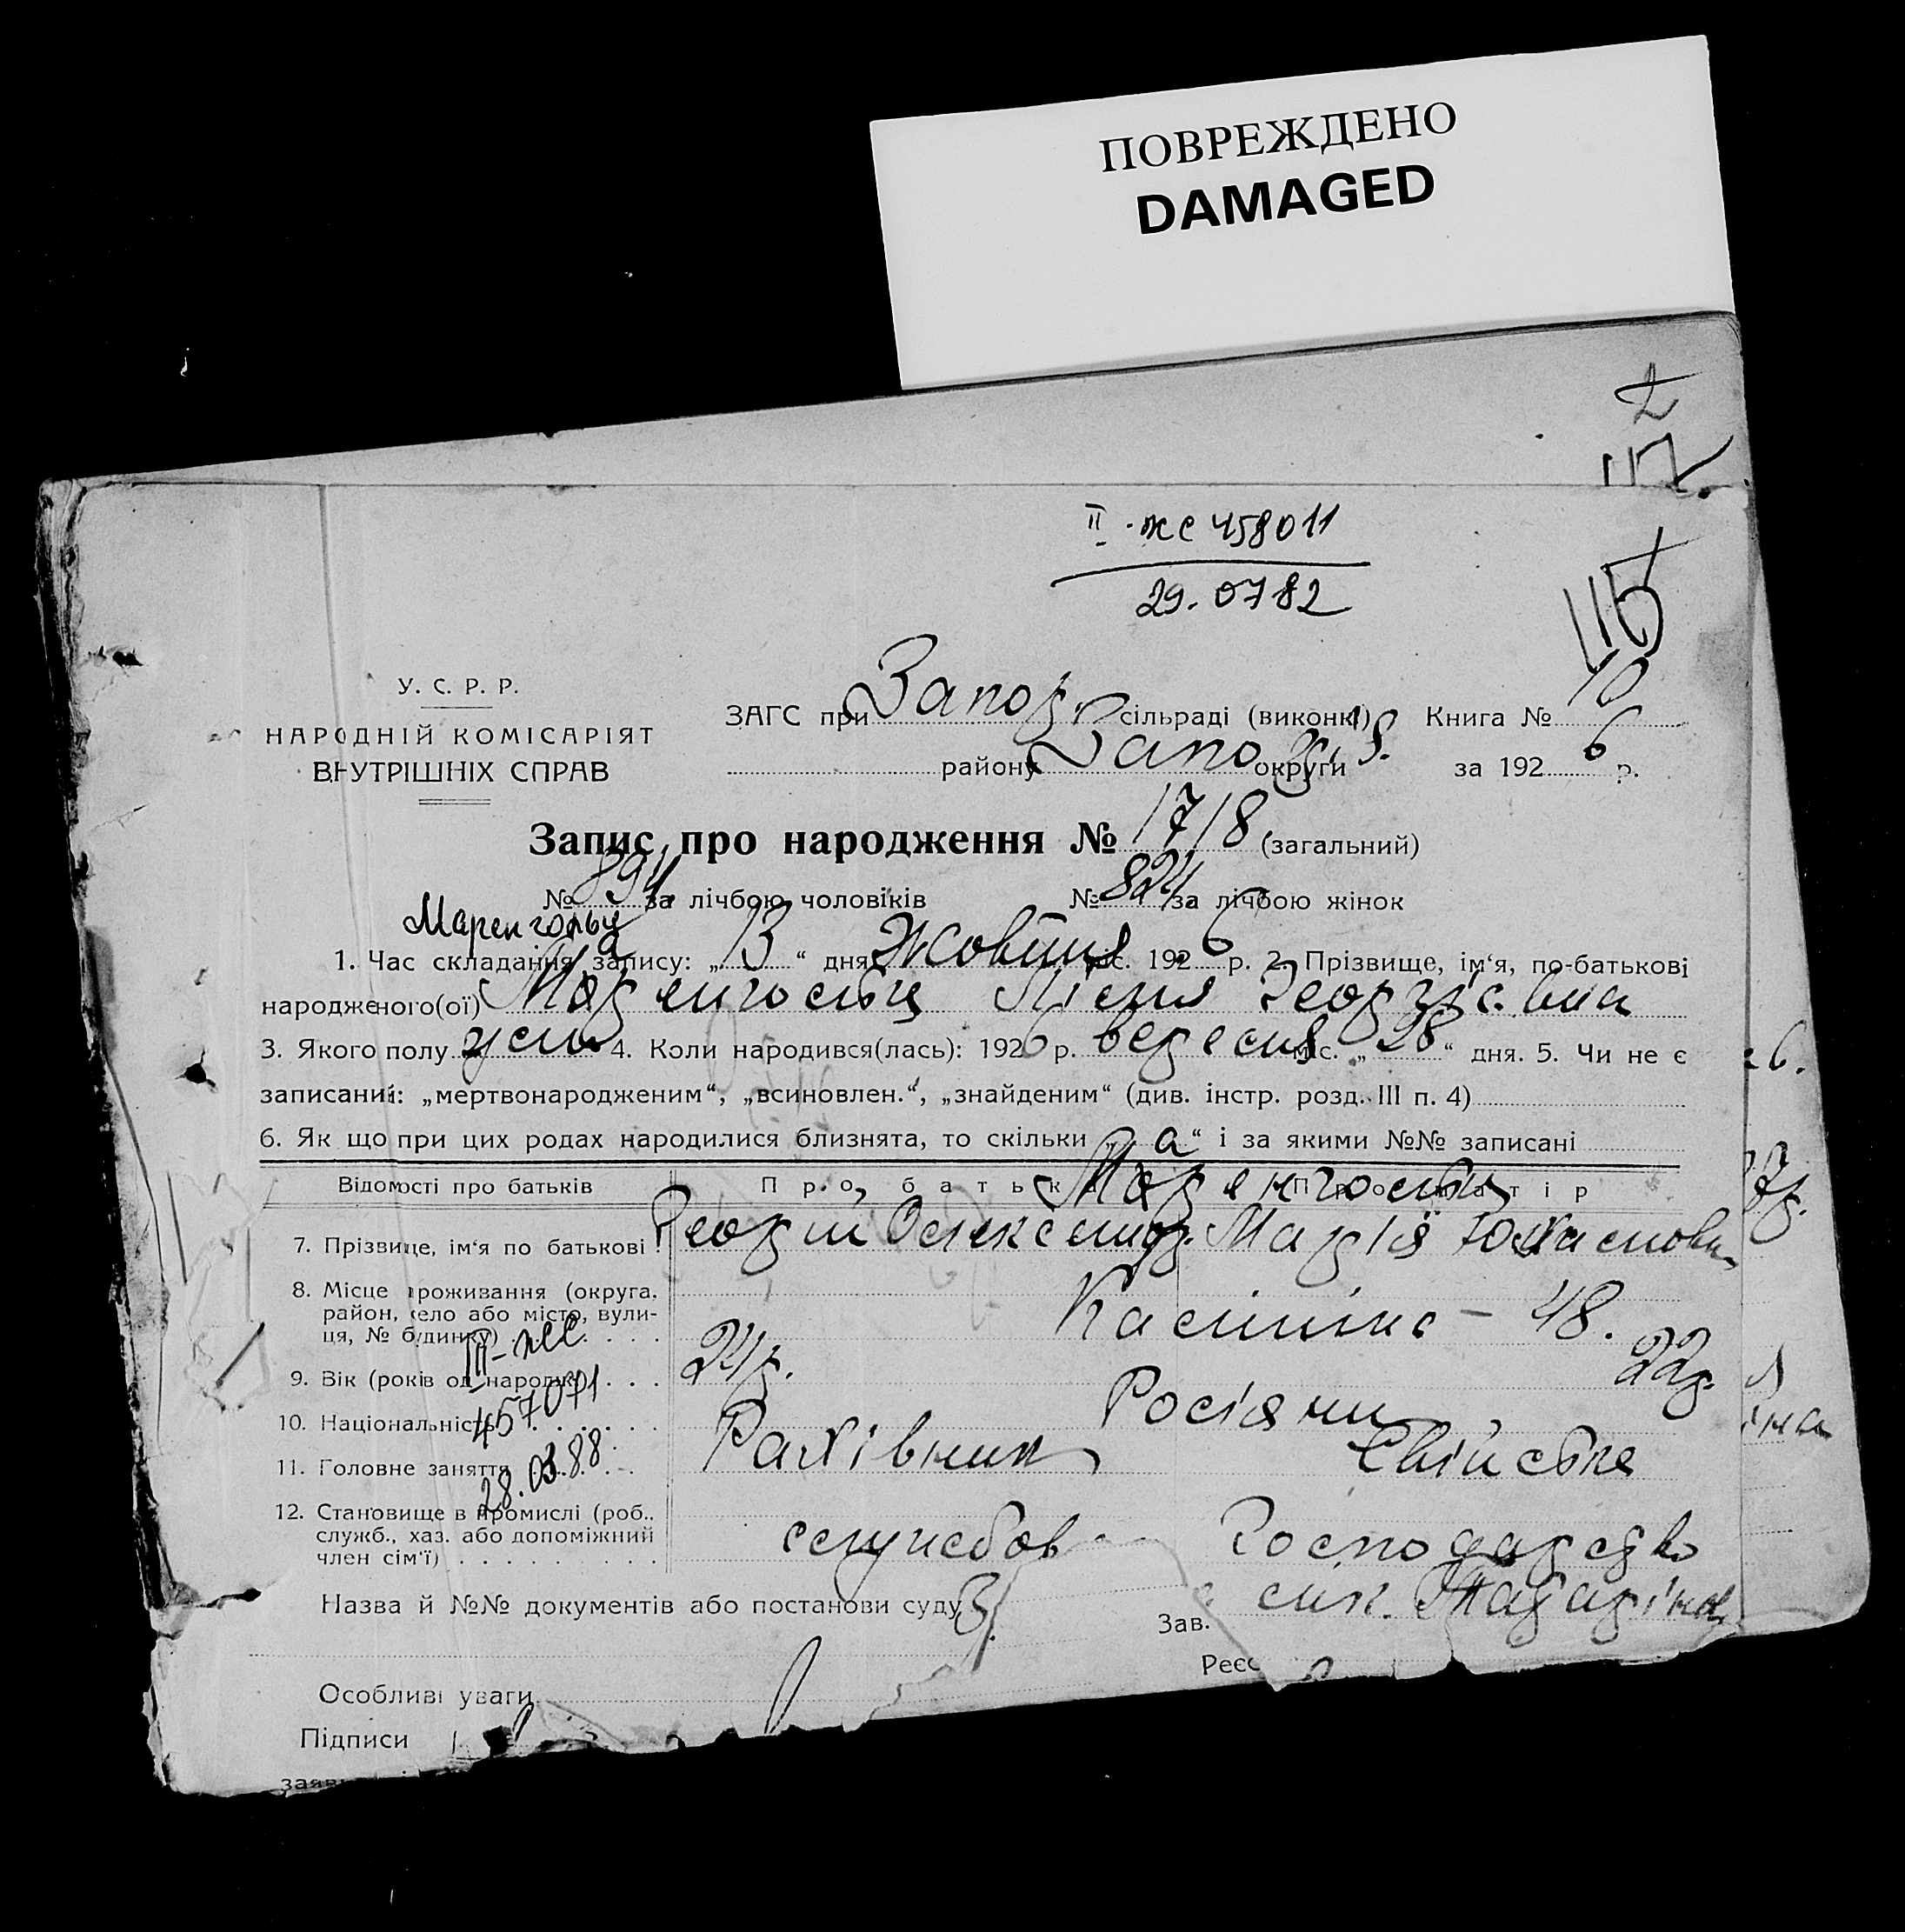 ПОВРЕЖДЕНО
DAMAGED
2
117
II - жс 458011
29.0782
115
У. С. Р. Р.
НАРОДНІЙ КОМІСАРІЯТ
ВНУТРІШНІХ СПРАВ
ЗАГС при Запор. сільраді (виконк.) Книга № 10
району Запо округи за 1926 р.
Запис про народження № 1718 (загальний)
№ 894 за лічбою чоловіків № 824 за лічбою жінок
Маренгольц
1. Час складання запису: „13“ дня Жовтня міс. 1926 р. 2. Прізвище, ім‘я, по-батькові
народженого(ої) Маренгольц Лілія Георгіївна
3. Якого полу жін 4. Коли народився(лась): 1926 р. вересня міс. „28“ дня. 5. Чи не є
записаний: „мертвонародженим“, „всиновлен.“, „знайденим“ (див. інстр. розд. III п. 4)
6. Як що при цих родах народилися близнята, то скільки „а“ і за якими №№ записані
Відомості про батьків Про батька Про матір
Маренгольц
7. Прізвище, ім‘я по батькові Георгій Олександ. Марія
8. Місце проживання (округа, район, село або місто, вулиця, № будинку) - 48.
III - жс
9. Вік (років од народж.) 24 р. 22 р.
457071
10. Національність Росіяни
11. Головне заняття Рахівник Хатнє
28.03.88
12. Становище в промислі (роб., служб., хаз. або допоміжний член сім‘ї) службов Господарство
Назва й №№ документів або постанови суду
Зав.
Реєс
Особливі уваги
Підписи
заяв